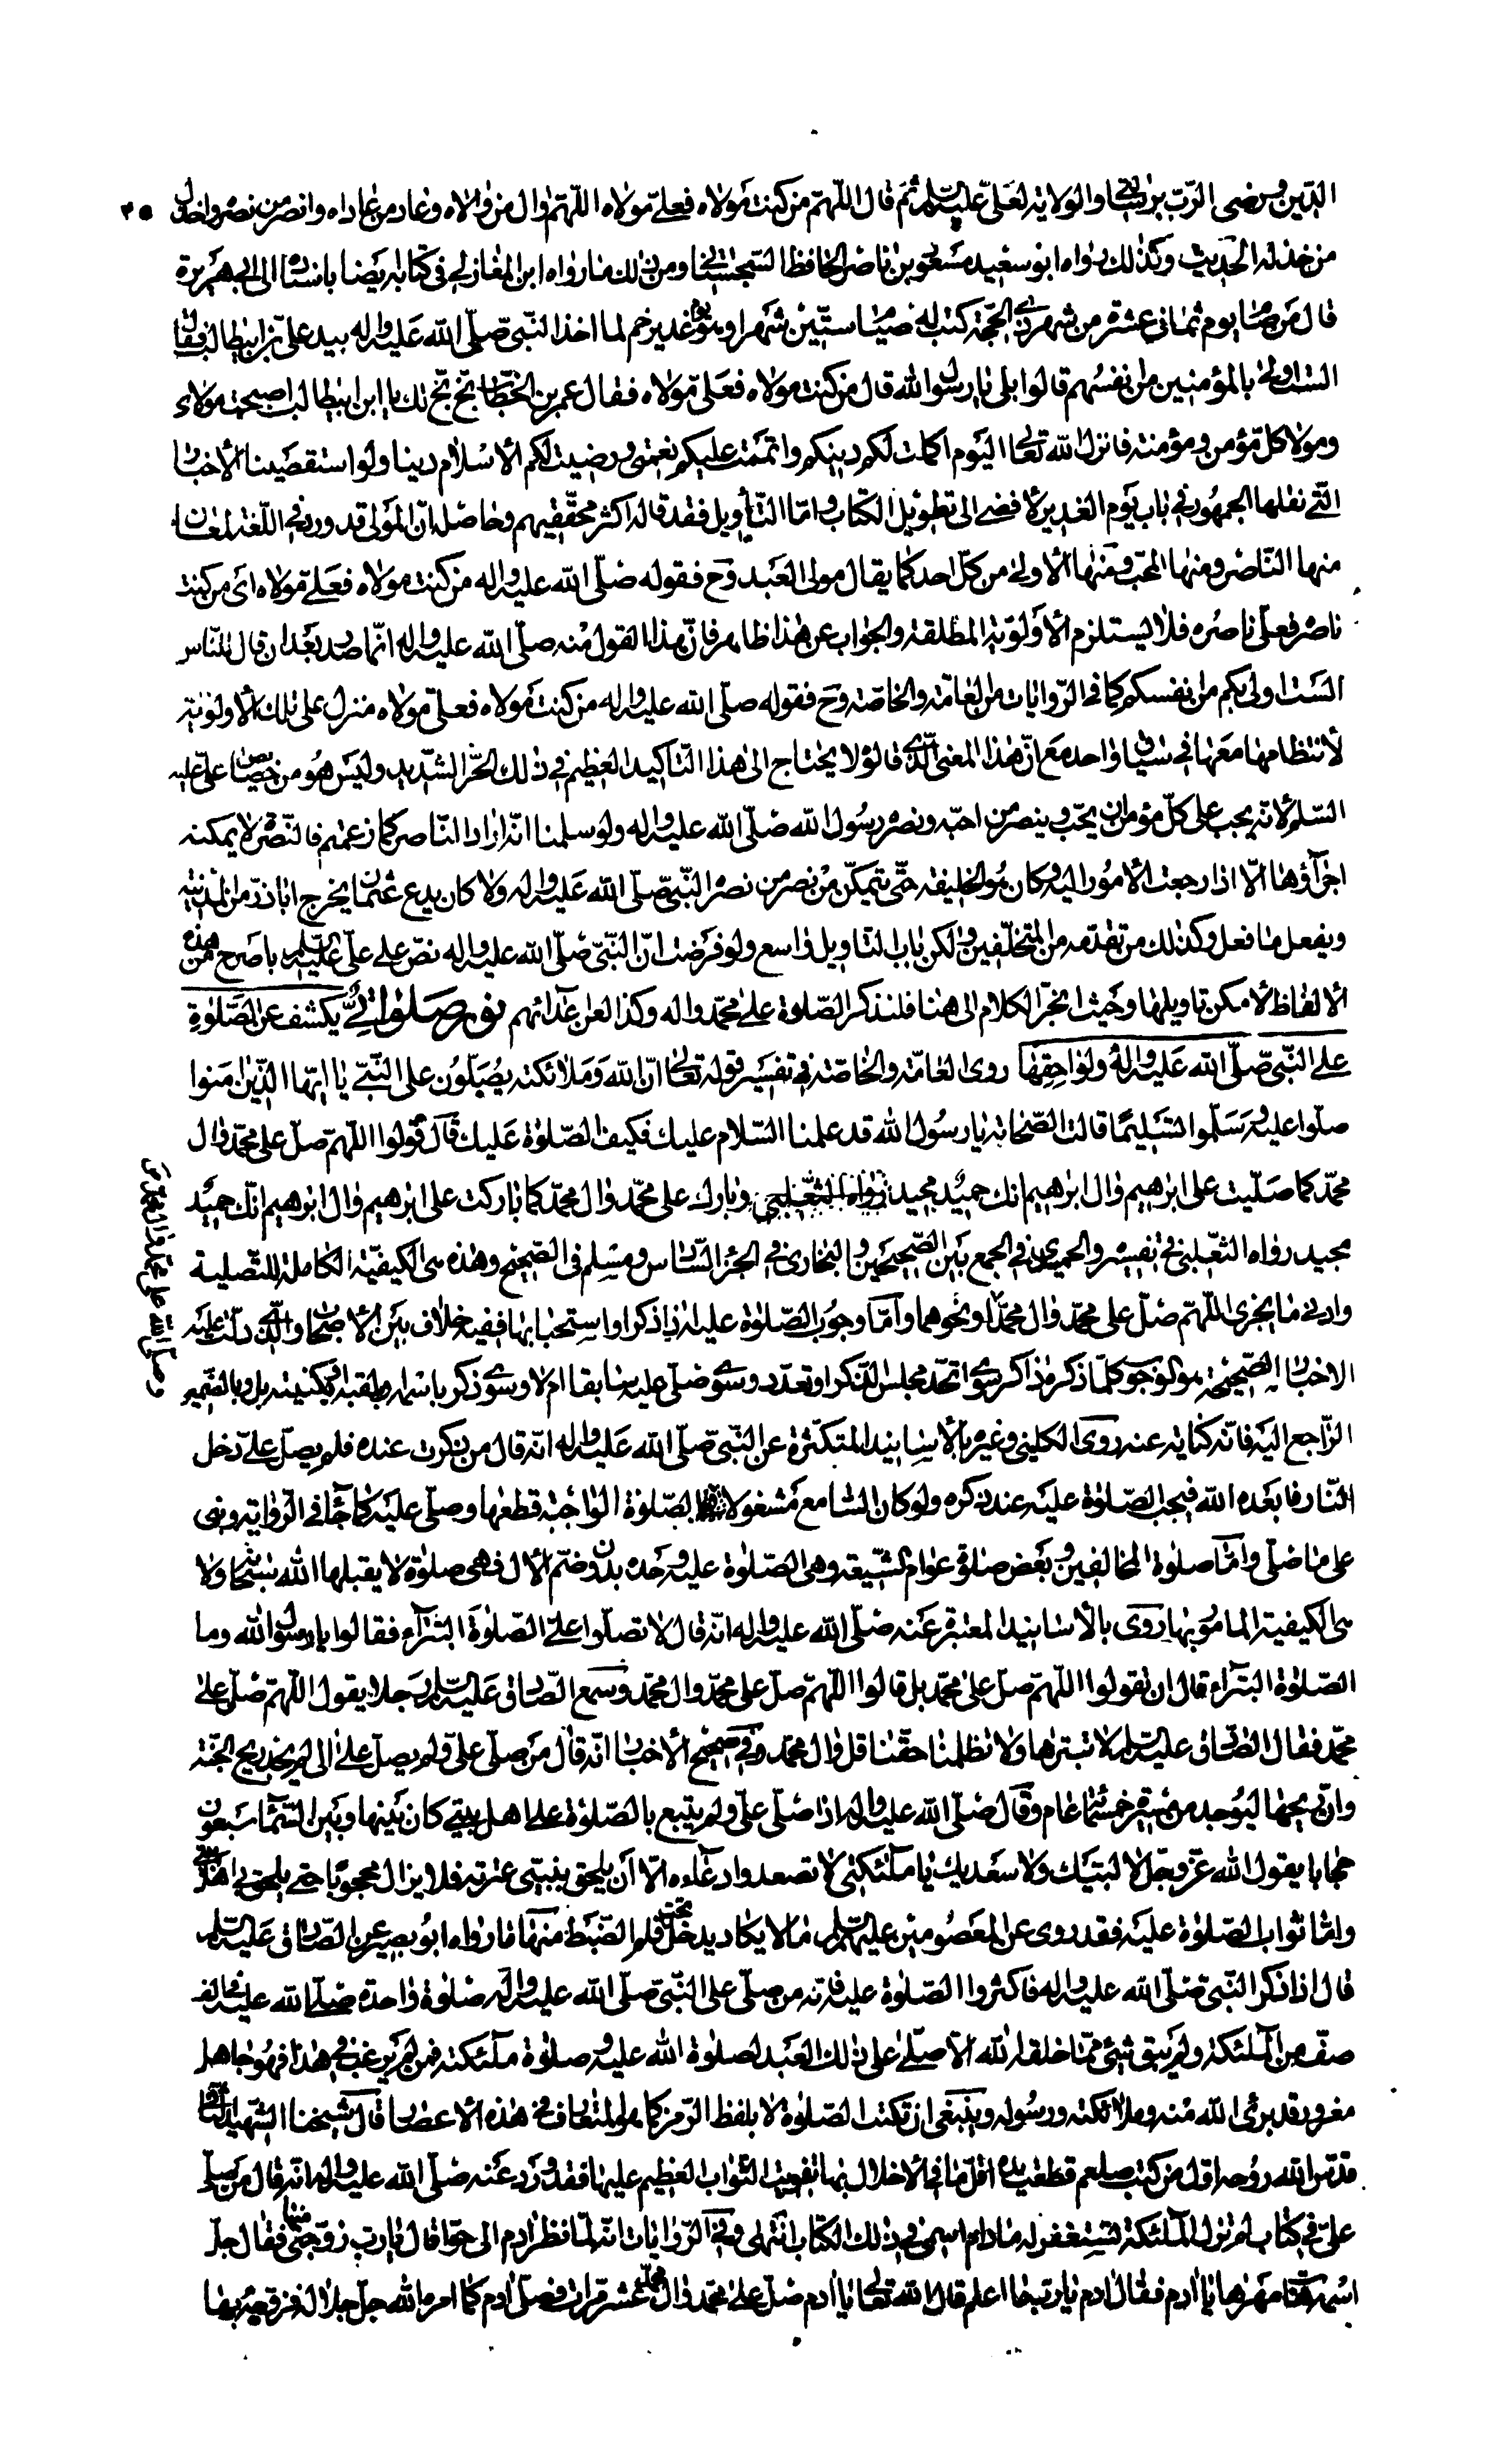 الدّين ورضى الربّ برسالتى والولاية لعلىّ عليه السلم ثم قال اللّهمّ من كنت مولاه فعلىّ مولاه اللّهمّ وال من والاه وعاد من عاداه وانصر من نصره واخذل
من خذله الحديث وكذلك رواه ابو سعيد مسعود بن ناصر الحافظ السّجستانى ومن ذلك ما رواه ابن المغازلى فى كتابه ايضا باسناده الى ابى هريرة
قال من صام يوم ثمانى عشرة من شهر ذى الحجّة كتب له صيام ستّين شهرا وهو يوم غدير خم لما اخذ النّبىّ صلّى الله عليه واله بيد علىّ بن ابيطالب فقال
الست اولى بالمؤمنين من انفسهم قالوا بلى يا رسول الله قال من كنت مولاه فعلىّ مولاه فقال عمر بن الخطّاب بخّ بخّ لك يا ابن ابيطالب اصبحت مولاى
ومولا كلّ مؤمن ومؤمنة فانزل الله تعالى اليوم اكملت لكم دينكم واتممت عليكم نعمتى ورضيت لكم الاسلام دينا ولو استقصينا الاخبار
الّتى نقلها الجمهور فى باب يوم الغدير لافضى الى تطويل الكتاب وامّا التّأويل فقد قاله اكثر محقّقيهم وحاصله انّ المولى قد ورد فى اللّغة لمعان
منها النّاصر ومنها المحبّ ومنها الاولى من كلّ احد كما يقال مولى العبد وح فقوله صلّى الله عليه واله من كنت مولاه فعلىّ مولاه اى من كنت
ناصره فعلىّ ناصره فلا يستلزم الاولويّة المطلقة والجواب عن هذا ظاهر فانّ هذا القول منه صلّى الله عليه واله انّما صدر بعد ان قال للنّاس
الست اولى بكم من انفسكم كما فى الرّوايات من العامّة والخاصّة وح فقوله صلّى الله عليه واله من كنت مولاه فعلىّ مولاه منزل على تلك الاولويّة
لانتظامها معها فى سياق واحد مع انّ هذا المعنى الّذى قالوه لا يحتاج الى هذا التّأكيد العظيم فى ذلك الحرّ الشّديد وليس هو من خصايص علىّ عليه
السّلم لانّه يجب على كلّ مؤمن ان يحبّ وينصر من احبّه ونصره رسول الله صلّى الله عليه واله ولو سلمنا انّه اراد النّاصر كما زعمتم فالنّصرة لا يمكنه
اجراؤها الّا اذا رجعت الامور اليه وكان هو الخليفة حتّى يتمكّن من نصر من نصره النّبىّ صلّى الله عليه واله ولا كان يدع عثمان يخرج اباذرّ من المدينة
ويفعل ما فعل وكذلك من تقدّمه من المتخلّفين ولكن باب التاويل واسع ولو فرضت انّ النّبىّ صلّى الله عليه واله نصّ على علىّ عليه السلم باصرح من هذه
الالفاظ لامكن تاويلها وحيث انجرّ الكلام الى هنا فلنذكر الصّلوة على محمّد واله وكذا لعن اعدائهم نور صلواتىّ يكشف عن الصّلوة
على النّبىّ صلّى الله عليه واله ولواحقها روى العامّة والخاصّة فى تفسير قوله تعالى انّ الله وملائكته يصلّون على النّبىّ يا ايّها الّذين امنوا
صلّوا عليه وسلّموا تسليمًا قالت الصّحابة يا رسول الله قد علمنا السّلام عليك فكيف الصّلوة عليك قال قولوا اللّهمّ صلّ على محمّد وال
محمّد كما صلّيت على ابرهيم وال ابرهيم انك حميد مجيد وبارك على محمّد وال محمّد كما باركت على ابرهيم وال ابرهيم انّك حميد
مجيد رواه الثّعلبى فى تفسيره والحميدى فى الجمع بين الصّحيحين والبخارى فى الجزء السّادس ومسلم فى الصّحيح وهذه هى الكيفيّة الكاملة للتّصلية
وادنى ما يجزى اللّهمّ صلّ على محمّد وال محمّد او نحوهما وامّا وجوب الصّلوة عليه اذا ذكر او استحبابها ففيه خلاف بين الاصحاب والّذى دلّت عليه
الاخبار الصّحيحة هو الوجوب كلّما ذكره ذاكر سوى اتّحد مجلس الذّكر او تعدّد وسوى صلّى عليه سابقا ام لا وسوى ذكر باسمه او لقبه او كنيته بل وبالضّمير
الرّاجع اليه فانّه كناية عنه روى الكلينى وغيره بالاسانيد المتكثّرة عن النّبىّ صلّى الله عليه واله انّه قال من ذكرت عنده فلم يصلّ علىّ دخل
النّار فابعده الله فيجب الصّلوة عليه عند ذكره ولو كان السّامع مشغولا بالصّلوة الواجبة قطعها وصلّى عليه كما جآء فى الرّواية وبنى
على ما صلّى وامّا صلوة المخالفين وبعض عوام الشّيعة وهى الصّلوة عليه وحده بدون ضمّ الال فهى صلوة لا يقبلها الله سبحانه ولا
هى الكيفية المامور بها روى بالاسانيد المعتبرة عنه صلّى الله عليه واله انّه قال لا تصلّوا علىّ الصّلوة البتراء فقالوا يا رسول الله وما
الصّلوة البتراء قال ان تقولوا اللّهمّ صلّ على محمّد بل قالوا اللّهمّ صلّ على محمّد وال محمّد وسمع الصّادق عليه السلم رجلا يقول اللّهمّ صلّ على
محمّد فقال الصّادق عليه السلم لا تبترها ولا تظلمنا حقّنا قل وال محمّد وفى صحيح الاخبار انّه قال من صلّى علىّ ولم يصلّ على الى لم يجد ريح الجنّة
وانّ ريحها ليوجد من مسيرة خمسمائة عام وقال صلّى الله عليه واله اذا صلّى علىّ ولم يتبع بالصّلوة على اهل بيتى كان بينها وبين السّماء سبعون
حجابا يقول الله عزّ وجلّ لا لبّيك ولا سعديك يا ملئكتى لا تصعدوا دعاءه الّا ان يلحق بنبيّى عترته فلا يزال محجوبًا حتّى يلحق بى اهل بيتى
وامّا ثواب الصّلوة عليه فقد روى عن المعصومين عليهم السلم ما لا يكاد يدخل تحت قلم الضّبط منها ما رواه ابو بصير عن الصّادق عليه السلم
قال اذا ذكر النّبىّ صلّى الله عليه واله فاكثروا الصّلوة عليه فانّه من صلّى على النّبىّ صلّى الله عليه واله صلوة واحدة صلّى الله عليه فى الف
صفّ من الملئكة ولم يبق شىء ممّا خلق الله الّا صلّى على ذلك العبد لصلوة الله عليه وصلوة ملئكته فمن لم يرغب فى هذا فهو جاهل
مغرور قد برئ الله منه وملائكته ورسوله وينبغى ان تكتب الصّلوة لا بلفظ الرّمز كما هو المتعارف فى هذه الاعصار قال شيخنا الشّهيد الثّانى
قدّس الله روحه اوّل من كتب صلعم قطعت يده اقلّ ما فى الاخلال بها تفويت الثّواب العظيم عليها فقد ورد عنه صلّى الله عليه واله انّه قال من صلّى
علىّ فى كتاب لم تزل الملئكة تستغفر له ما دام اسمى فى ذلك الكتاب انتهى وفى الرّوايات انّه لمّا نظر ادم الى حوّا قال يا ربّ زوّجنى منها فقال جلّ
اسمه هات مهرها يا ادم فقال ادم يا ربّ ما اعلم قال الله تعالى يا ادم صلّ على محمّد وال محمّد عشر مرّات فصلّى ادم كما امره الله جلّ جلاله فزوّجه بها